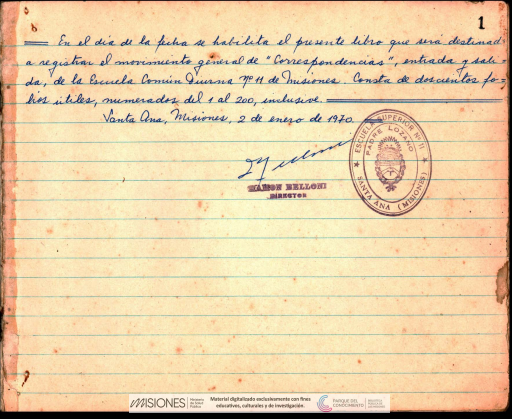 1
En el día de la fecha se habilita el presente libro que será destinad
a registrar el movimiento general de "Correspondencias", entrada y sali-
da, de la Escuela Común Diurna Nº 11 de Misiones. Consta de doscientos fo-
lios útiles, numerados del 1 al 200, inclusive.
Santa Ana, Misiones, 2 de enero de 1970.
ESCUELA SUPERIOR Nº 11
PADRE LOZANO
SANTA ANA (MISIONES)
BELLONI
DIRECTOR
MISIONES
Material digitalizado exclusivamente con fines
educativos, culturales y de investigación.
PARQUE DEL
CONOCIMIENTO